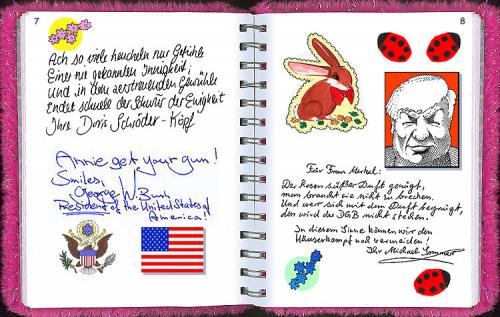 7
Ach so viele heucheln nur Gefühle
Einer nie gekannten Innigkeit;
Und in dem zerstreuenden Gewühle
Endet schnelle der Schwur der Ewigkeit
Ihre Doris Schröder-Köpf
Annie get your gun!
Smiles,
George W. Bush
President of the United States of
America!
8
Für Frau Merkel:
Der Rosen süßer Duft genügt,
man braucht sie nicht zu brechen.
Und wer sich mit dem Duft begnügt,
den wird der DGB nicht stechen.
In diesem Sinne können wir den
Häuserkampf noch vermeiden!
Ihr Michael Sommer